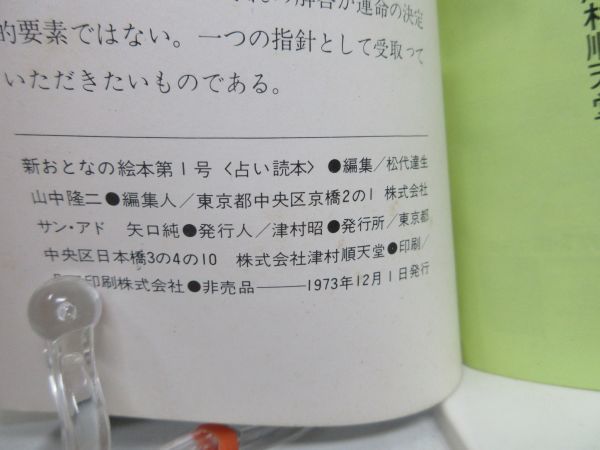 の解答が運命の決定
的要素ではない。一つの指針として受取って
いただきたいものである。
新おとなの絵本第1号〈占い読本〉●編集/松代達生
山中隆二●編集人/東京都中央区京橋2の1 株式会社
サン・アド 矢口純●発行人/津村昭●発行所/東京都
中央区日本橋3の4の10 株式会社津村順天堂●印刷/
印刷株式会社●非売品——1973年12月1日発行
村順天堂